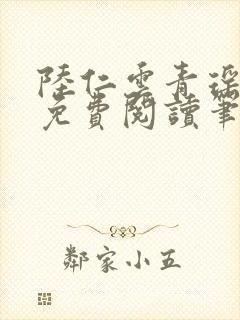 陸仁雲青瑶
免費閱讀筆
鄰家小五